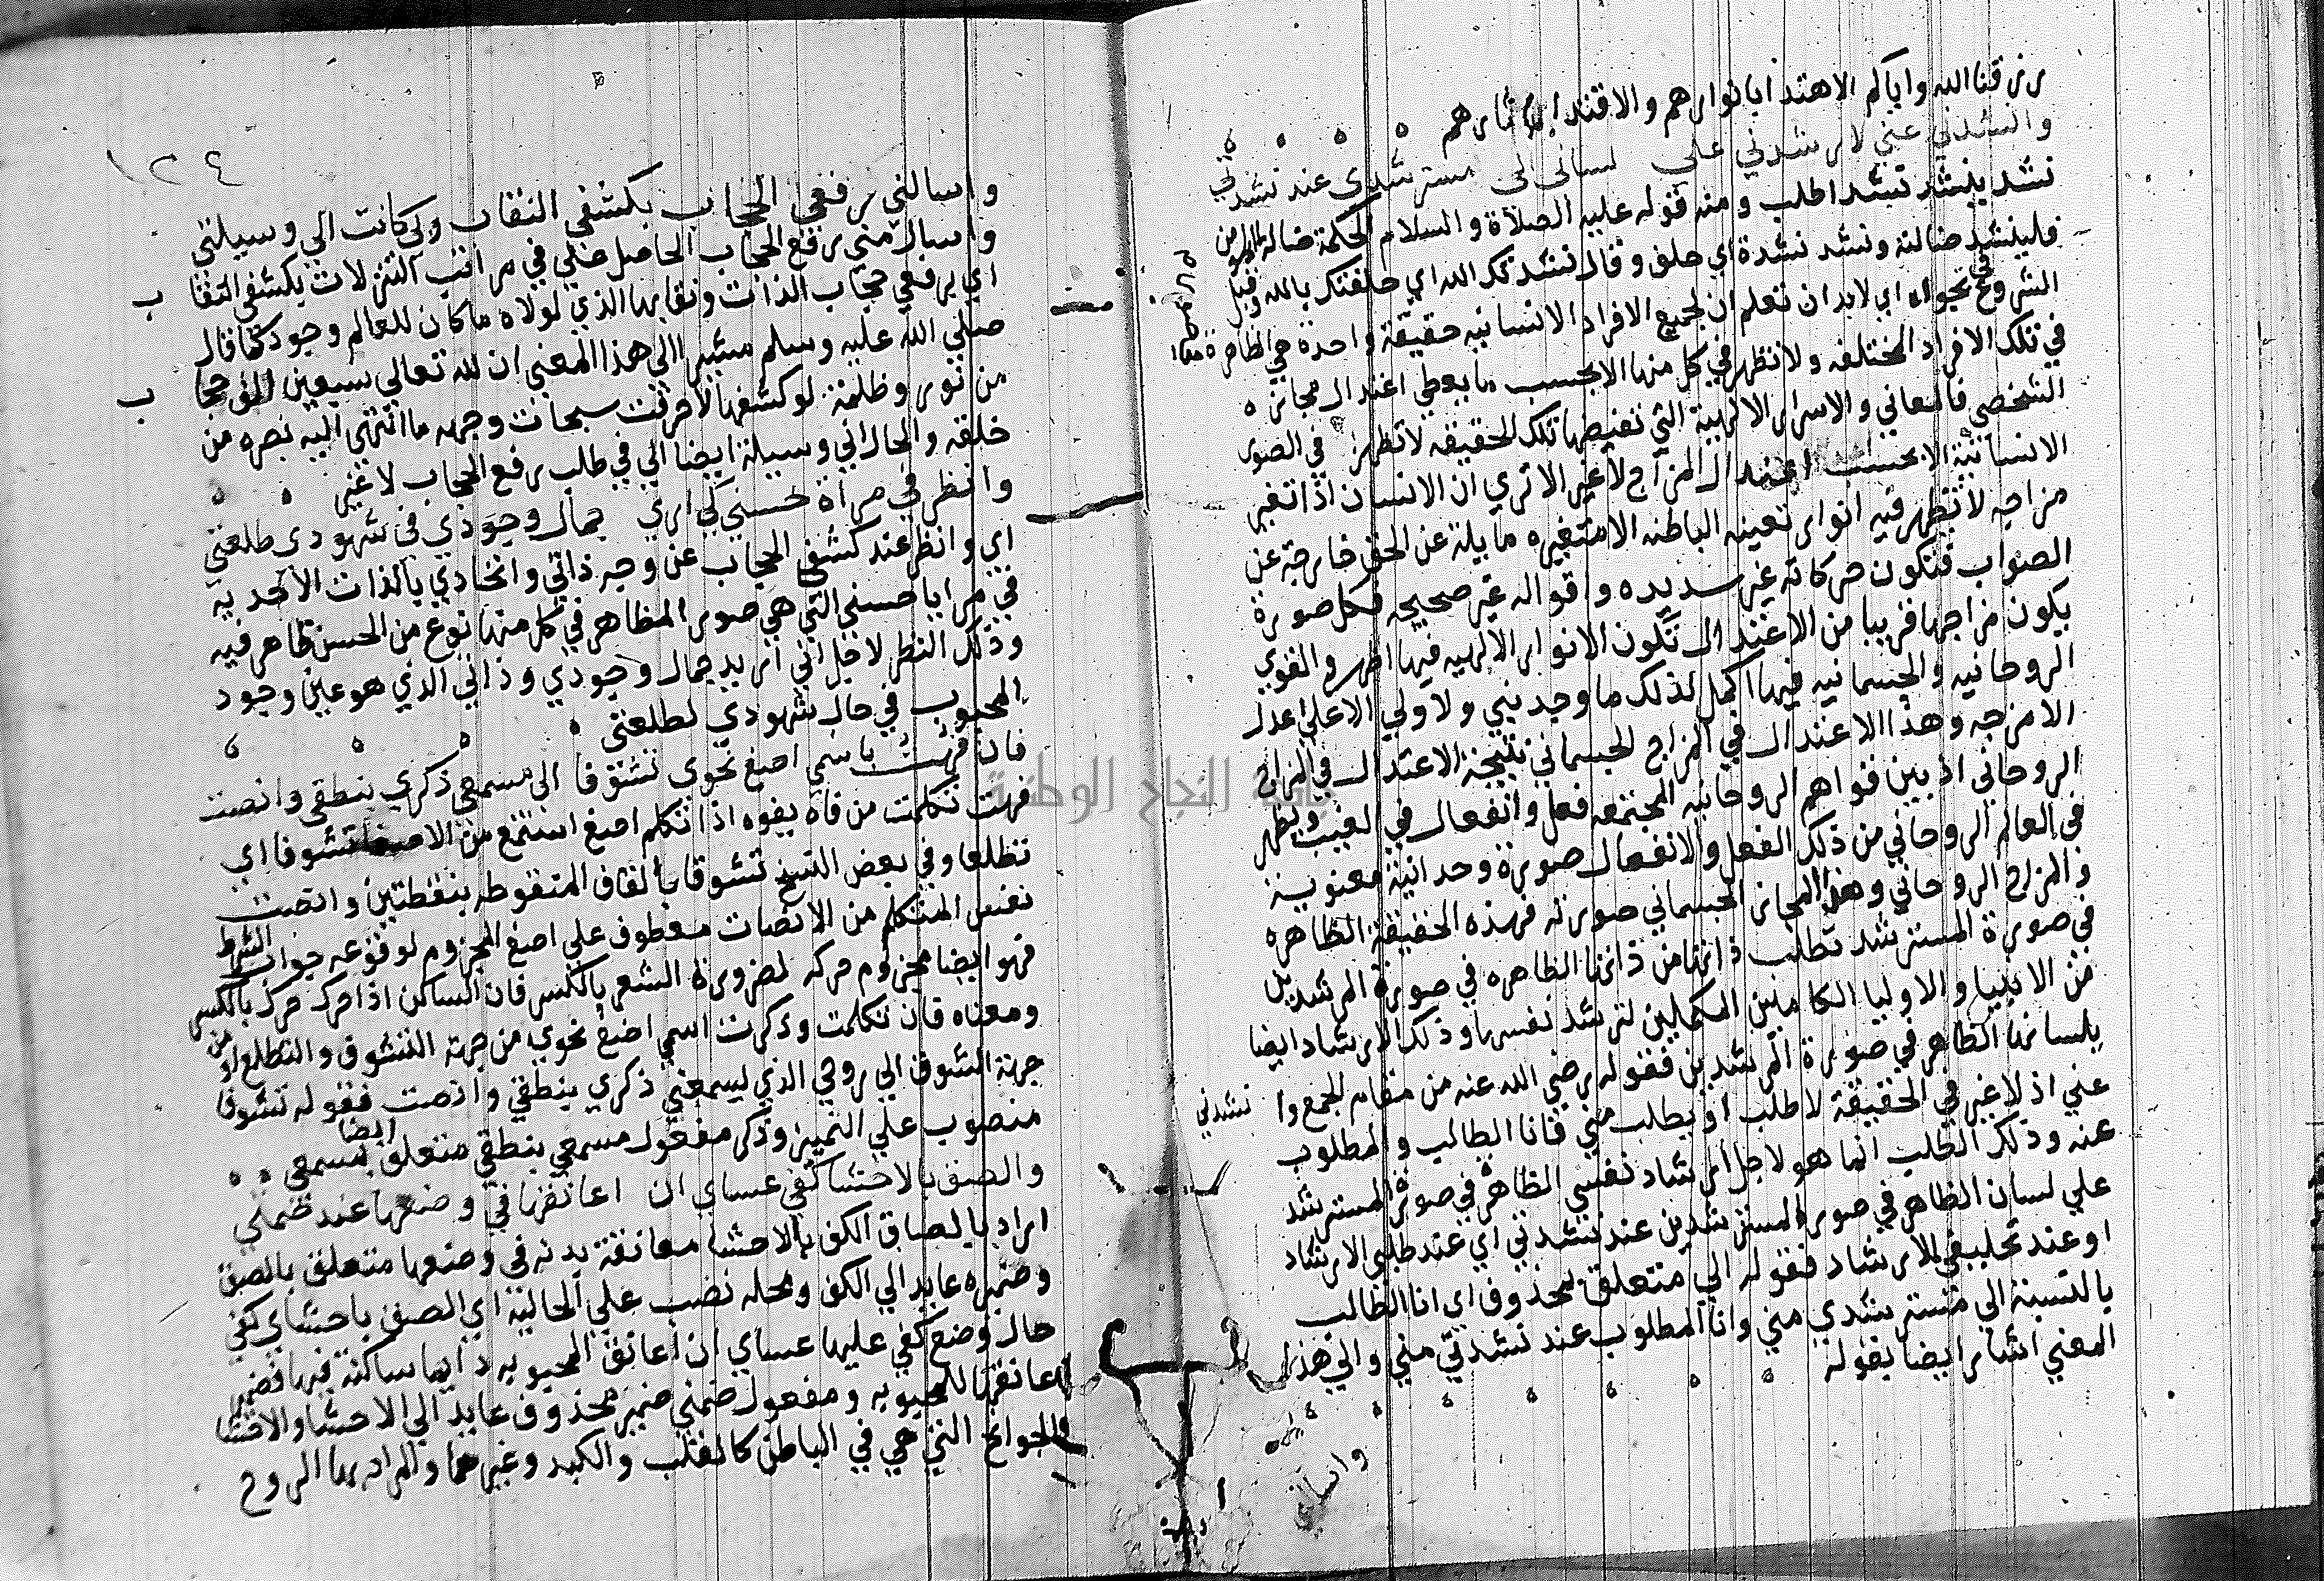 رزقنا الله واياكم الاهتدا بانوارهم والاقتدا باثارهم
وانشدني عني لارشدني على لساني الى مسترشدي عند نشدتي
نشد ينشد نشدا طلب ومنه قوله عليه الصلاة والسلام الحكمة ضالة المومن
فلينشد ضالته ونشد نشدة اي حلف وقال نشدتك الله اي حلفتك بالله وقبل
الشروع في نحواه اي لابد ان تعلم ان لجميع الافراد الانسانيه حقيقة واحدة هي الظاهرة
في تلك الافراد المختلفه ولا تظهر في كل منها الا بحسب ما يعطي اعتدال مجاز ه
الشخصي فالمعاني والاسرار الالهية التي تفيضها تلك الحقيقه لا تظهر في الصور
الانسانية الا بحسب اعتدال المزاج لا غير الا تري ان الانسان اذا تغير
مزاجه لا تظهر فيه انوار تعينه الباطنه الا متغيره مايلة عن الحق خارجة عن
الصواب فتكون حركاته غير سديده واقواله غير صحيحه فكل صورة
يكون مزاجها قريبا من الاعتدال تكون الانوار الالهيه فيها اظهر والقوي
الروحانيه والجسمانيه فيها اكمل لذلك ما وجد نبي ولا ولي الا علي اعدل
الامزجه وهذا الاعتدال في المزاج الجسماني نتيجة الاعتدال في المزاج
الروحاني اذ بين قواهم الروحانيه المجتمعه فعل وانفعال في الغيب ويظهر
في العالم الروحاني من ذلك الفعل والانفعال صورة وحدانية معنوية
والمزاج الروحاني وهذا المجاز الجسماني صورته فهذه الحقيقة الظاهره
في صورة المسترشد تطلب ذاتها من ذاتها الظاهره في صورة المرشدين
من الانبيا والاوليا الكاملين المكملين لترشد نفسها وذلك الارشاد ايضا
بلسانها الظاهر في صورة المرشدين فقوله رضي الله عنه من مقام الجمع وانشدني
عني اذ لا غير في الحقيقة لاطلب او يطلب مني فانا الطالب والمطلوب
عنه وذلك الطلب انما هو لاجل ارشاد نفسي الظاهر في صورة المسترشد
علي لسان الظاهر في صورة المسترشدين عند نشدتي اي عند طلبي الارشاد
او عند تحليفي للارشاد فقوله الي متعلق بمحذوف اي انا الطالب
بالنسبة الي مسترشدي مني وانا المطلوب عند نشدتي مني والي هذا
المعني اشار ايضا بقوله
١٢٤
واسالني رفعي الحجاب بكشفي النقاب ولي كانت الي وسيلتي
واسال مني رفع الحجاب الحاصل مني في مراتب التنزلات بكشفي النقاب
اي برفعي حجاب الذات ونقابها الذي لولاه ما كان للعالم وجود كما قال
صلي الله عليه وسلم مشيرا الي هذا المعني ان لله تعالي سبعين الف حجاب
من نور وظلمة لو كشفها لاحرقت سبحات وجهه ما انتهى اليه بصره من
خلقه والحال اني وسيلة ايضا الي في طلب رفع الحجاب لا غير
وانظر في مراة حسني كي اري جمال وجودي في شهودي طلعتي
اي وانظر عند كشفي الحجاب عن وجه ذاتي واتحادي بالذات الاحديه
في مرايا حسني التي هي صور المظاهر في كل منها نوع من الحسن ظاهر فيه
وذلك النظر لاجل اني اريد جمال وجودي وذاتي الذي هو عين وجود
المحبوب في حال شهودي لطلعتي
فان فهت باسمي اصغ نحوي تشوقا الى مسمعي ذكري بنطقي وانصت
فهت تكلمت من فاه يفوه اذا تكلم اصغ استمع من الاصغا تشوفا اي
تطلعا وفي بعض النسخ تشوقا بالقاف المنقوطه بنقطتين وانصت
نفس المتكلم من الانصات معطوف علي اصغ المجزوم لوقوعه جواب الشرط
فهو ايضا مجزوم حركه لضرورة الشعر بالكسر فان الساكن اذا حرك حرك بالكسر
ومعناه فان تكلمت وذكرت اسمي اصغ نحوي من جهة التشوف والتطلع او من
جهة الشوق الي روحي الذي يسمعني ذكري بنطقي وانصت فقوله تشوقا
منصوب علي التمييز وذكر مفعول مسمعي بنطقي متعلق ايضا بمسمعي
والصق بالاحشا كفي عساي ان اعانقها في وضعها عند ضمتي
اراد بالصاق الكف بالاحشا معانقة بدنه في وضعها متعلق بالصق
وضميره عايد الي الكف ومحله نصب علي الحالية اي الصق باحشاي كفي
حال وضع كفي عليها عساي ان اعانق المحبوبه دايما ساكنة فيها فضمير
اعانقها للمحبوبه ومفعول ضمني ضمير محذوف عايد الي الاحشا والاحشا
والجوانح التي هي في الباطن كالقلب والكبد وغيرهما والمراد بها الروح
واسالني
جامعة النجاح الوطنية